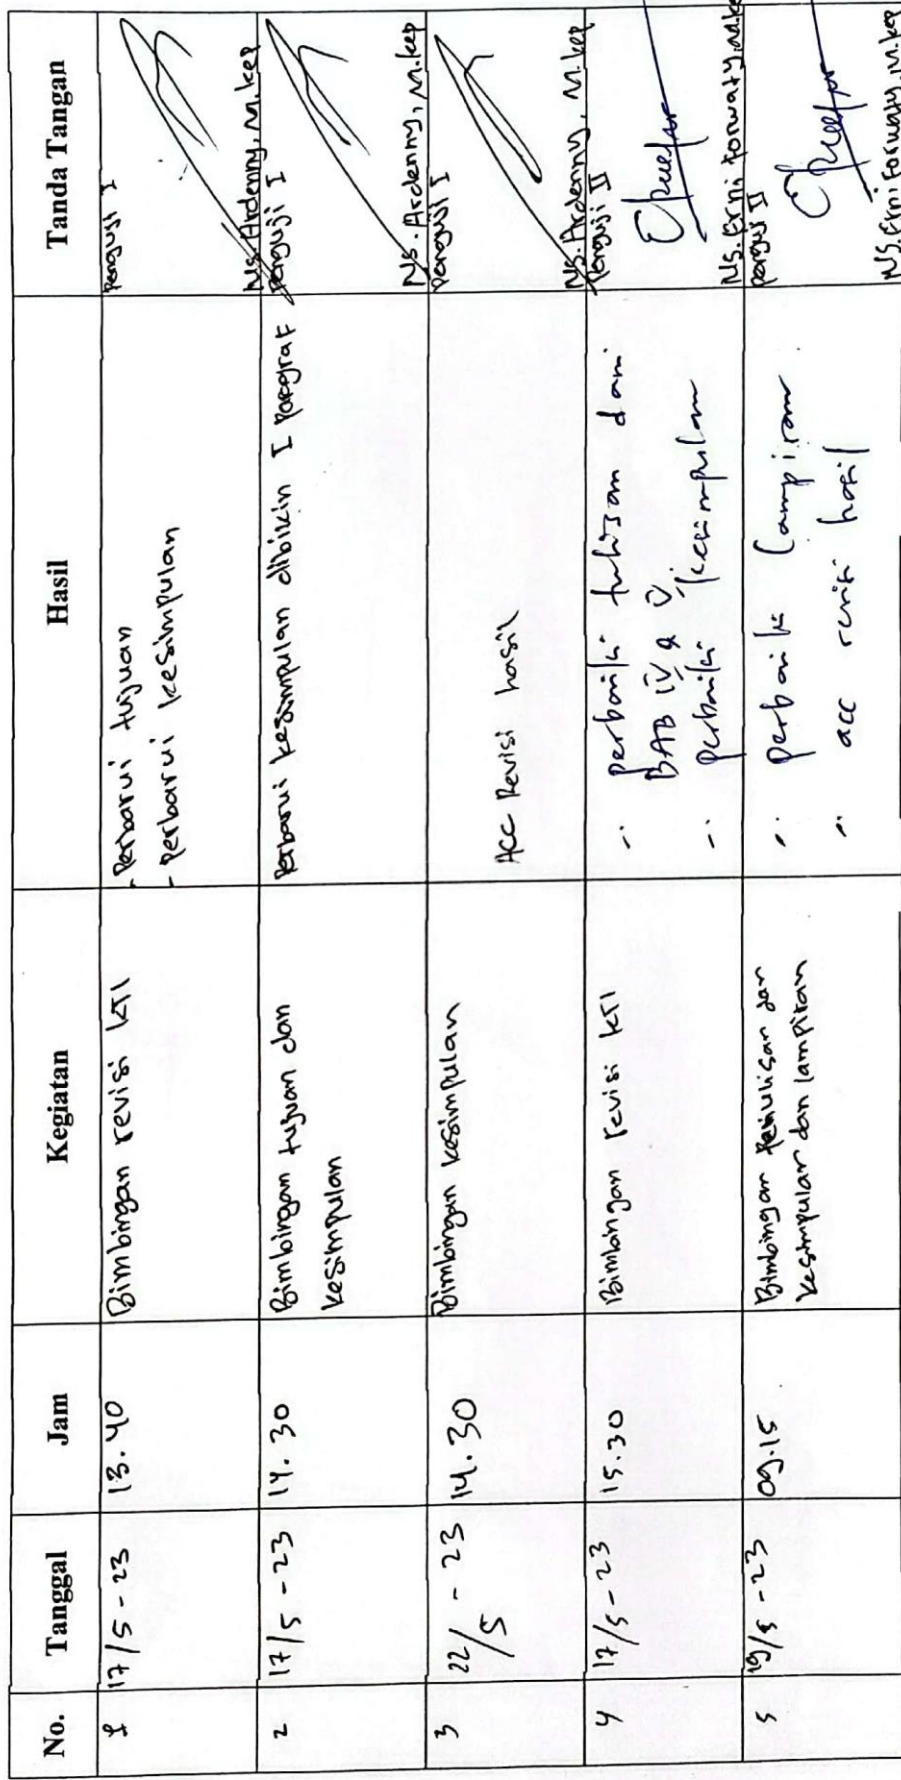 No. Tanggal Jam Kegiatan Hasil Tanda Tangan
1 17/5 - 23 13.40 Bimbingan revisi KTI - Perbarui tujuan Penguji I
- Perbarui kesimpulan
Ns. Ardenny, M.kep
2 17/5 - 23 14.30 Bimbingan tujuan dan Perbarui kesimpulan dibikin I Paragraf Penguji I
kesimpulan
Ns. Ardenny, M.kep
3 22/5 - 23 14.30 Bimbingan kesimpulan ACC Revisi hasil Penguji I
Ns. Ardenny, M.kep
4 17/5 - 23 15.30 Bimbingan revisi KTI - perbaiki tulisan dari Penguji II
BAB IV & V
- perbaiki kesimpulan
Ns. Erni Forwaty, M.kep
5 19/5 - 23 09.15 Bimbingan Penulisan dan - perbaiki lampiran Penguji II
kesimpulan dan lampiran - acc revisi hasil
Ns. Erni Forwaty, M.kep